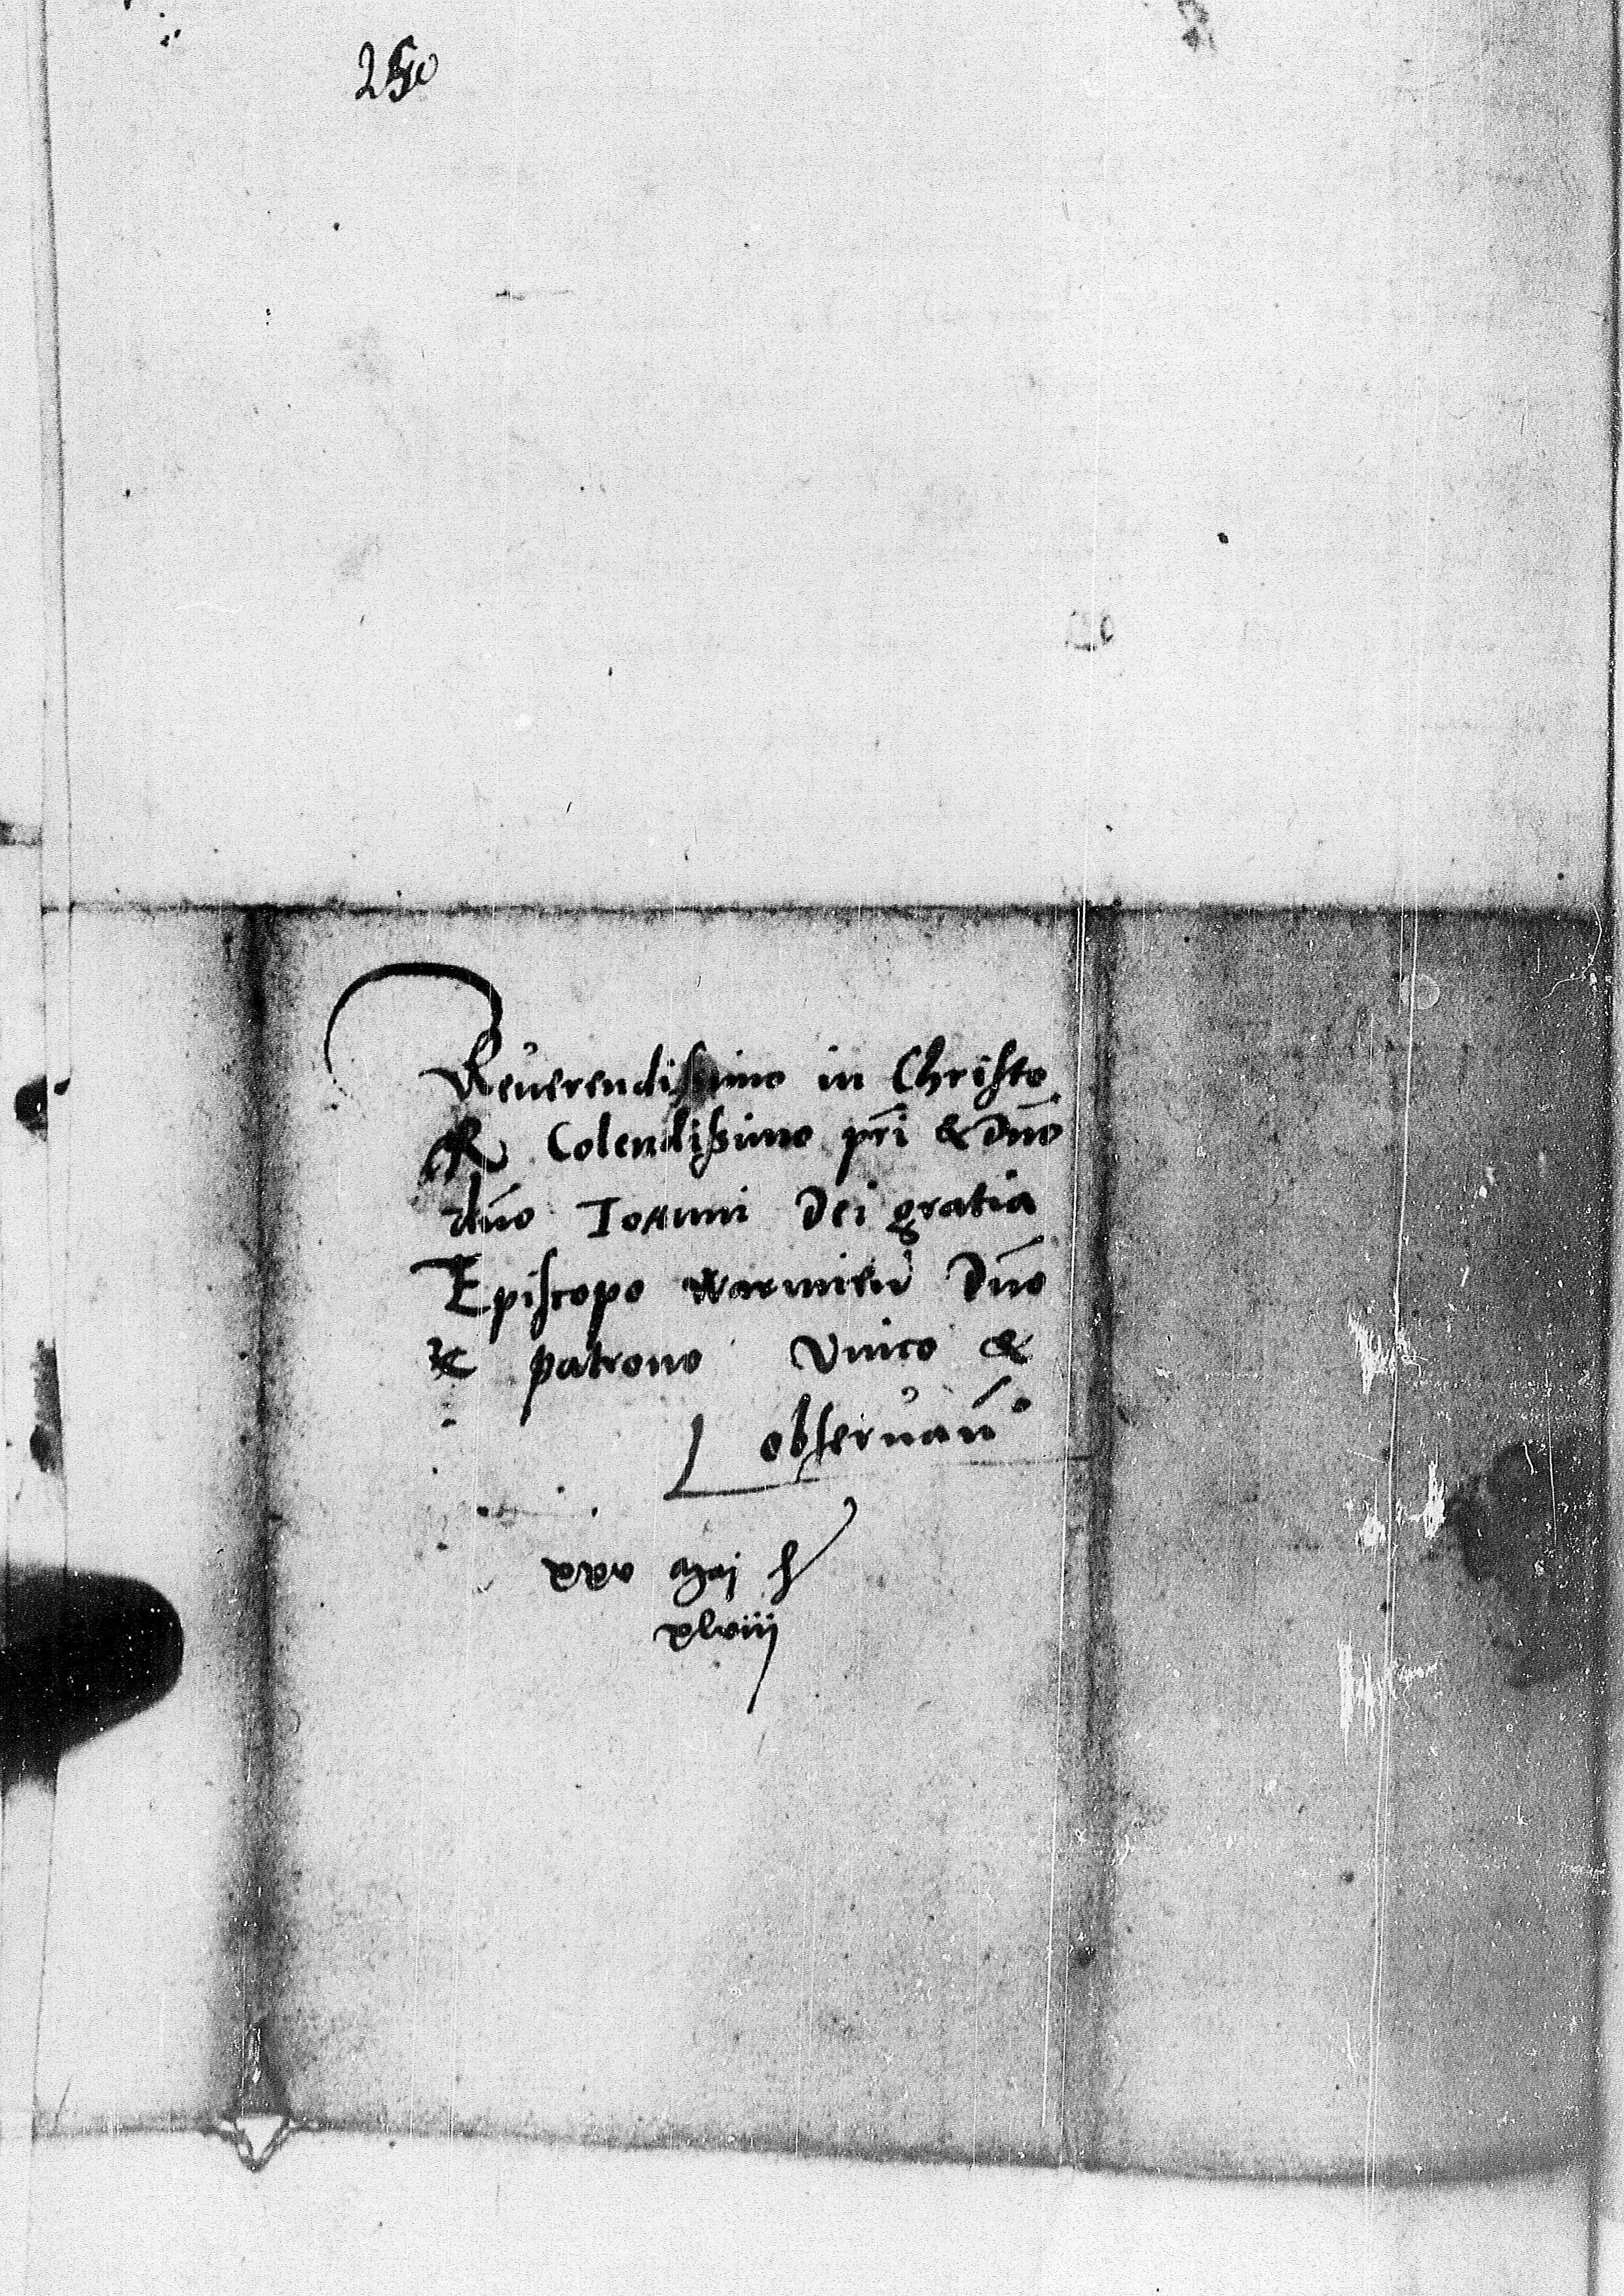 Reuerendissimo in Christo
& Colendissimo pri & dno
dno Ioanni Dei gratia
Episcopo warmien Dno
& patrono Vnico &
obseruan°
xxv
xlviii